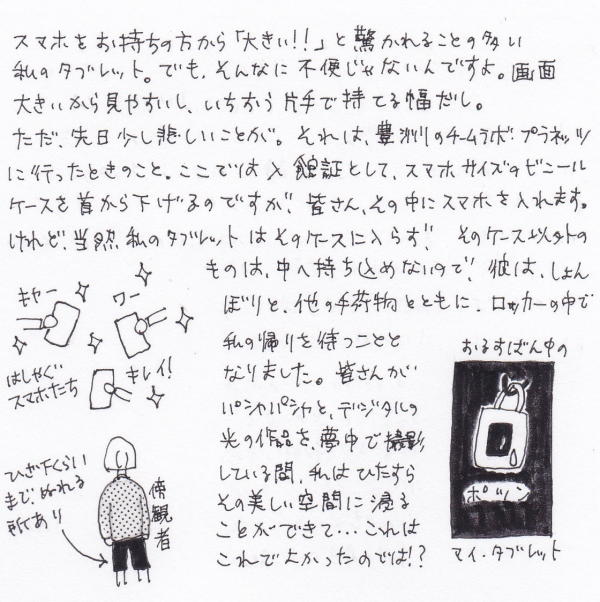 スマホをお持ちの方から「大きい!!」と驚かれることの多い
私のタブレット。でも、そんなに不便じゃないんですよ。画面
大きいから見やすいし、いちおう片手で持てる幅だし。
ただ、先日少し悲しいことが。それは、豊洲のチームラボ・プラネッツ
に行ったときのこと。ここでは入館証として、スマホサイズのビニール
ケースを首から下げるのですが、皆さん、その中にスマホを入れます。
けれど、当然私のタブレットはそのケースに入らず、そのケース以外の
ものは、中へ持ち込めないので、彼は、しょん
ぼりと、他の手荷物とともに、ロッカーの中で
私の帰りを待つことと
なりました。皆さんが
パシャパシャと、デジタルの
光の作品を、夢中で撮影
している間、私はひたすら
その美しい空間に浸る
ことができて…これは
これでよかったのでは!?
キャー
ワー
キレイ!
はしゃぐ
スマホたち
ひざ下くらい
まで、ぬれる
所あり
傍観者
おるすばん中の
ポツン
マイ・タブレット